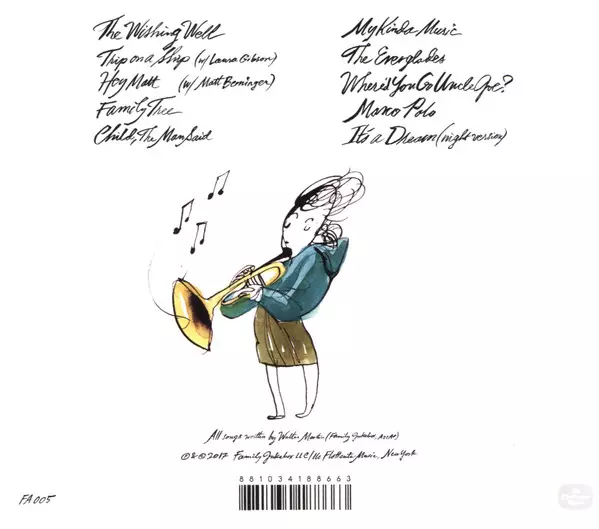 The Wishing Well
Trip on a Ship (w/ Laura Gibson)
Hey Matt (w/ Matt Berninger)
Family Tree
Child, The Man Said
My Kinda Music
The Everglades
Where'd You Go Uncle Joe?
Marco Polo
It's a Dream (night version)
All songs written by Walter Martin (Family Jukebox, ASCAP)
℗ & © 2017 Family Jukebox LLC/Ile Flottante Music, New York
881034188663
FA 005